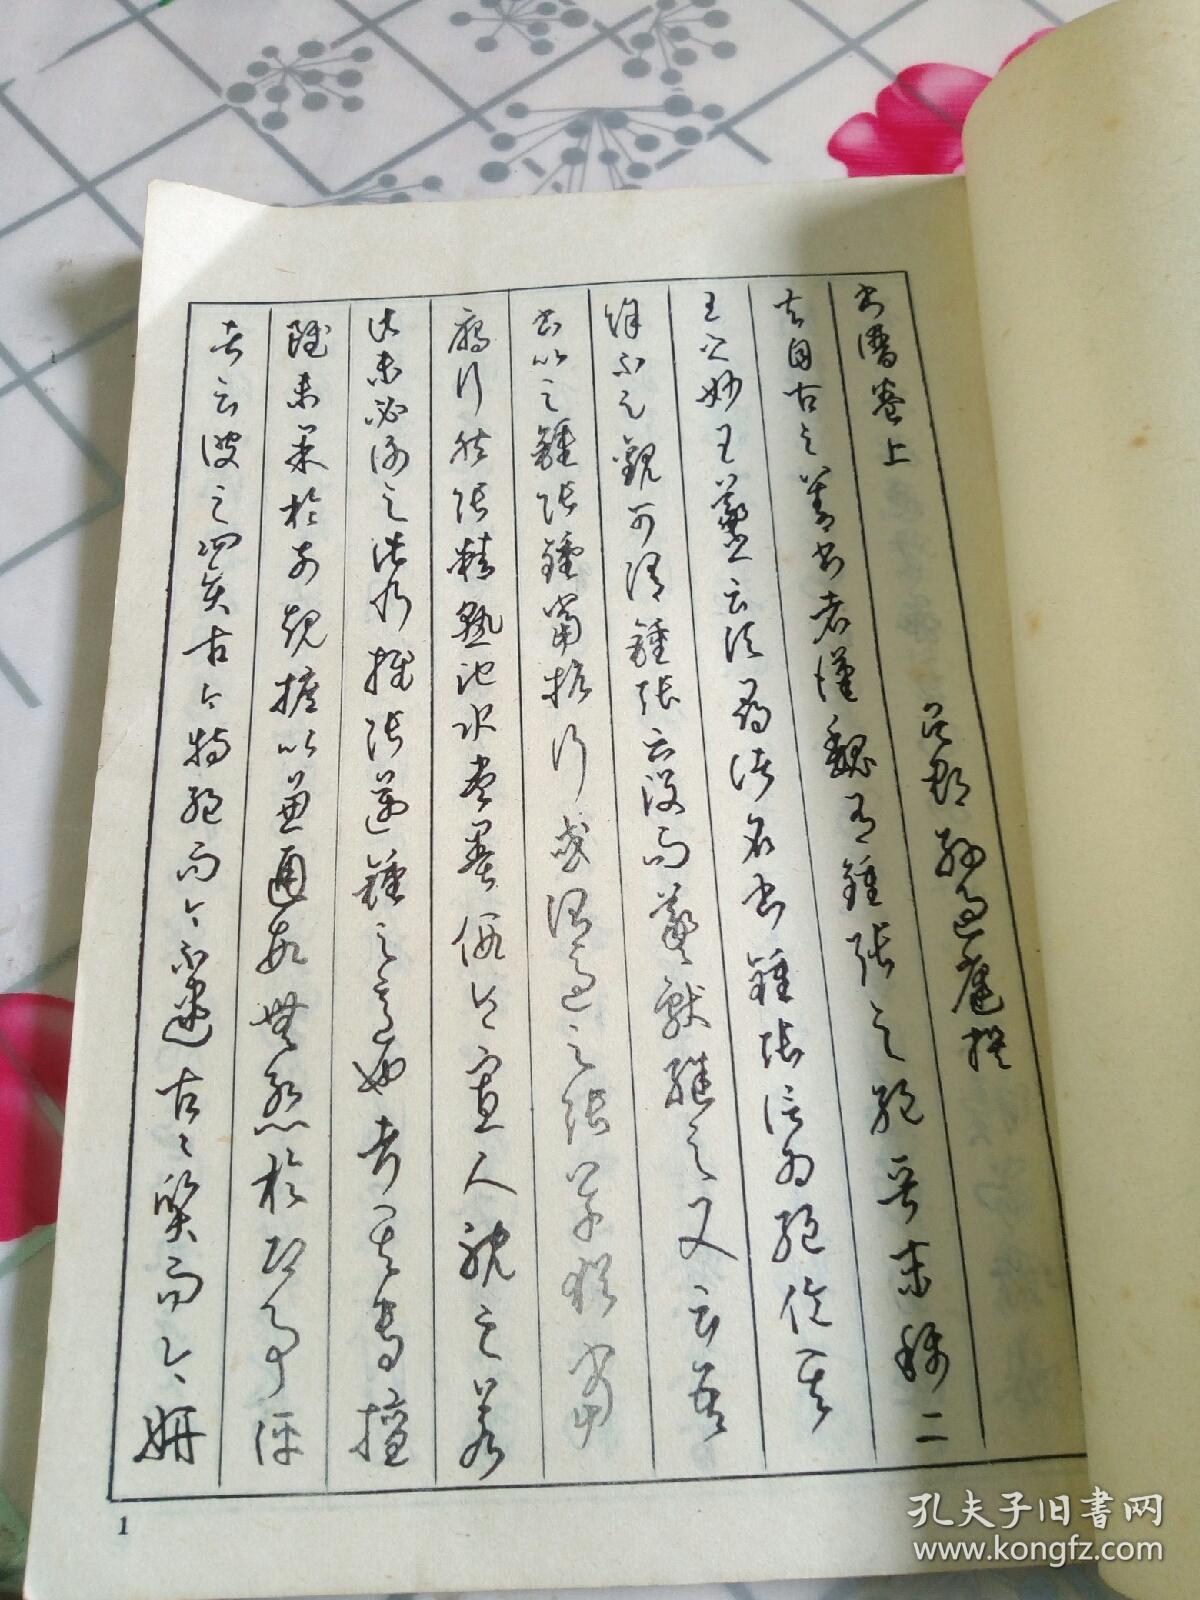 書譜卷上 吳郡孫過庭撰
夫自古之善書者漢魏有鍾張之絕晉末稱二
王之妙王羲之云頃尋諸名書鍾張信為絕倫其
餘不足觀可謂鍾張云沒而羲獻繼之又云吾
書比之鍾張鍾當抗行或謂過之張草猶當
鴈行然張精熟池水盡墨假令寡人耽之若
此未必謝之此乃推張邁鍾之意也考其專擅
雖未果於前規摭以兼通故無慚於即事評
者云彼之四賢古今特絕而今不逮古古質而今妍
1
孔夫子旧書网
www.kongfz.com